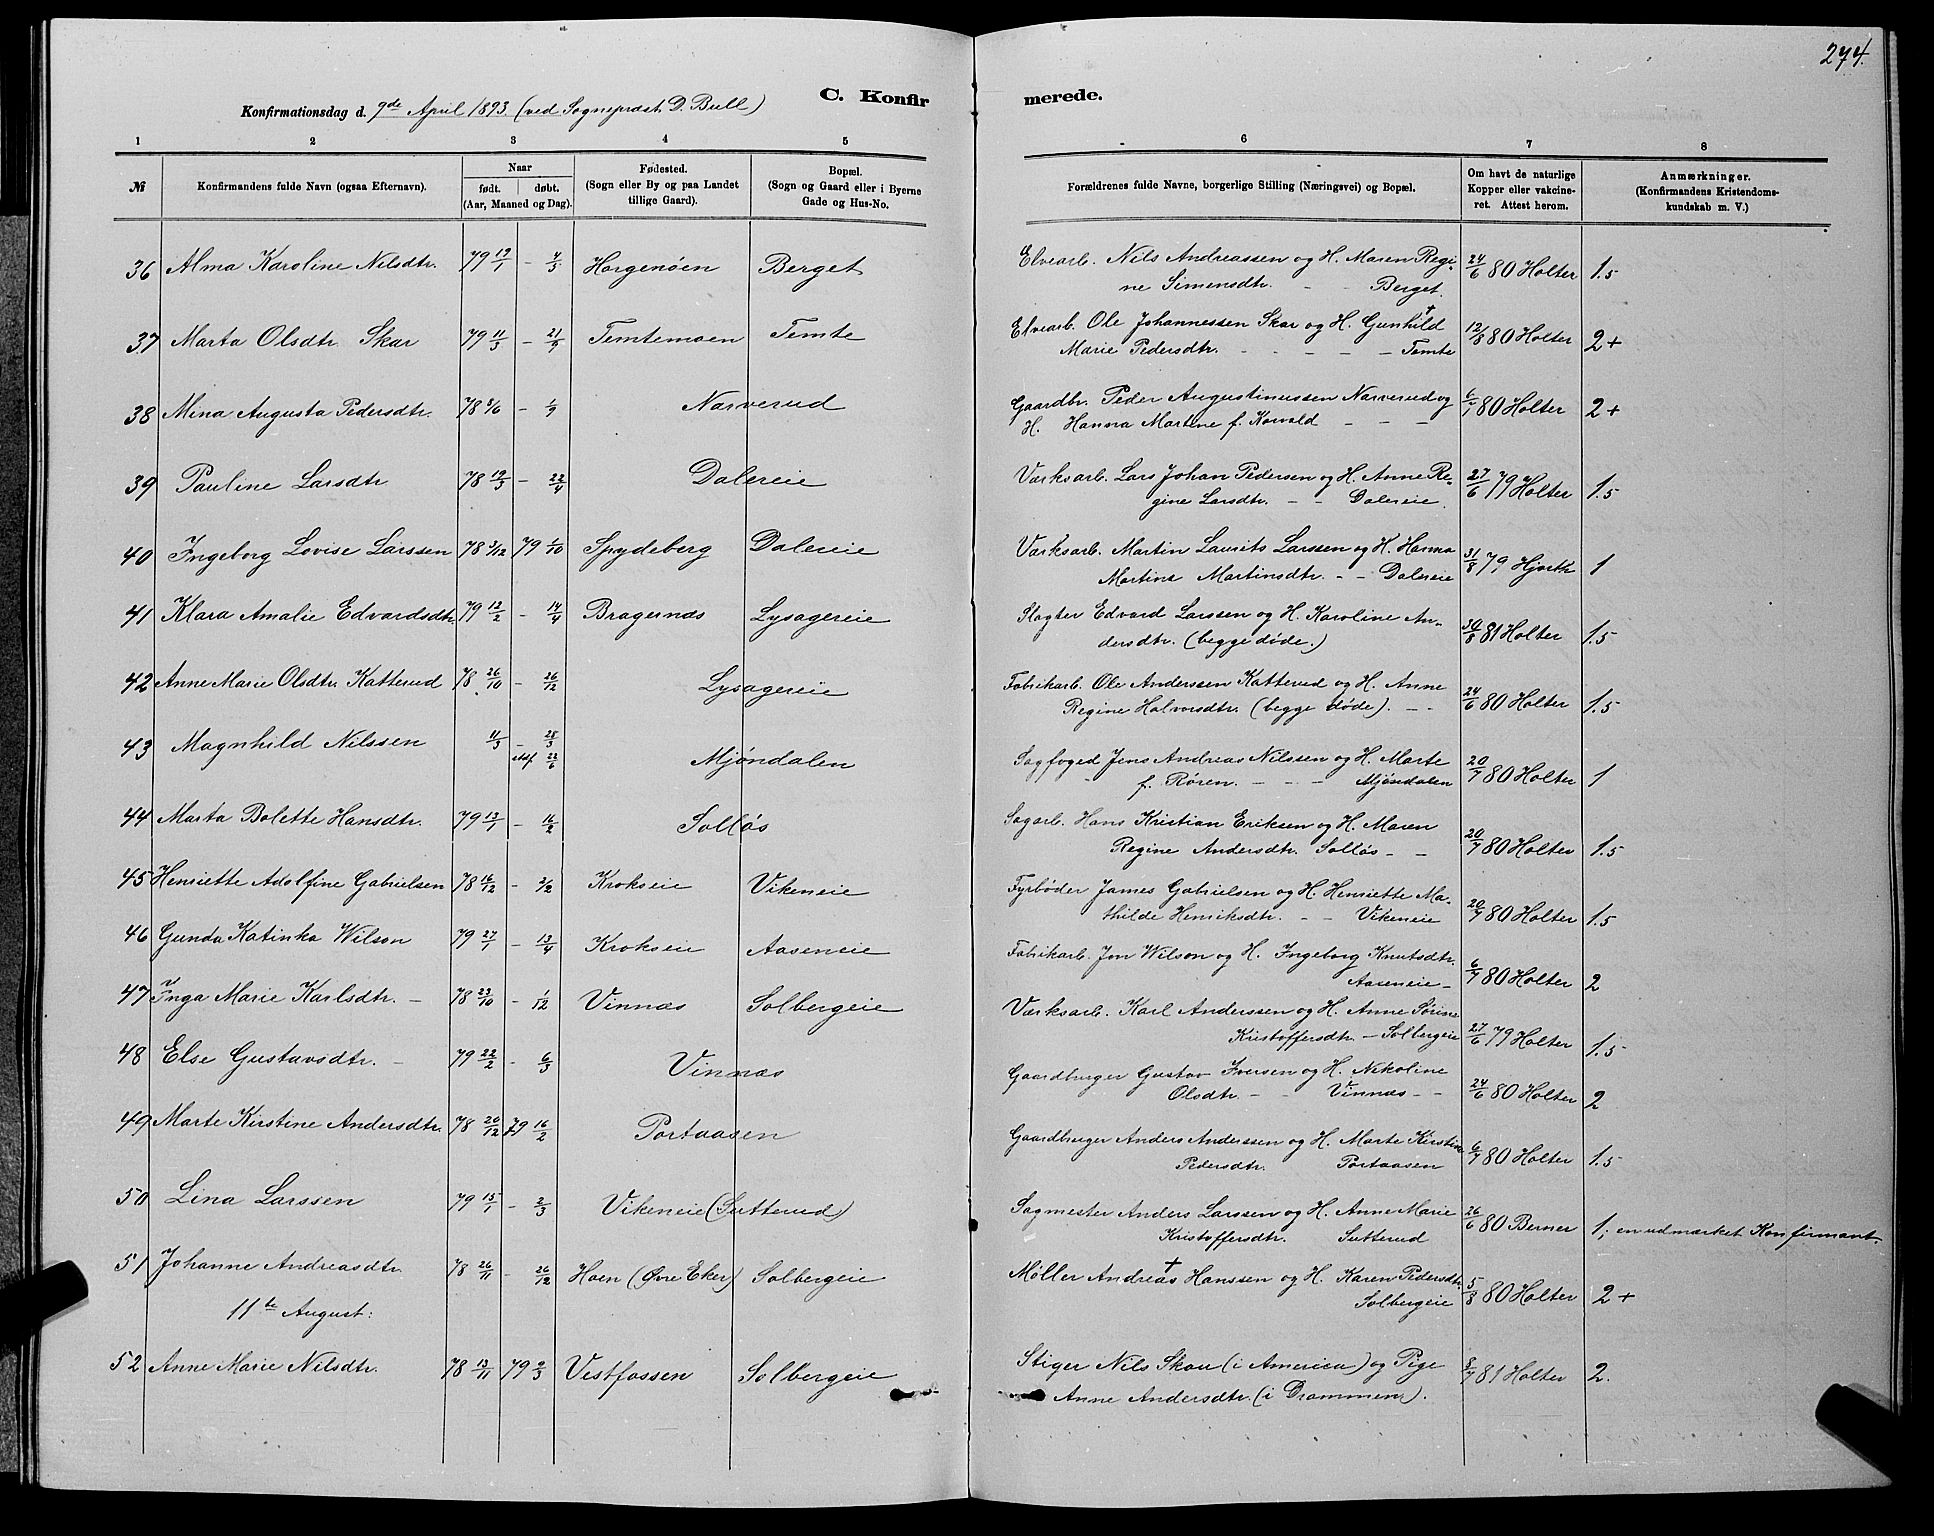 274.
C. Konfirmerede.
Konfirmationsdag d. 9de April 1893. (ved Sognepræst D. Bull)
1 2 3 4 5 6 7 8
№ Konfirmandens fulde Navn (ogsaa Efternavn). Naar født. døbt. (Aar, Maaned og Dag). Fødested. (Sogn eller By og paa Landet tillige Gaard). Bopæl. (Sogn og Gaard eller i Byerne Gade og Hus-No. Forældrenes fulde Navne, borgerlige Stilling (Næringsvei) og Bopæl. Om havt de naturlige Kopper eller vakcineret. Attest herom. Anmærkninger. (Konfirmandens Kristendomskundskab m. V.)
36 Alma Karoline Nilsdtr. 79 19/1 - 4/5 Horgenöen Berget Elvearb. Nils Andreassen og H. Maren Regi-
ne Simensdtr. - - Berget. 24/6 80 Holter 1.5
37 Marta Olsdtr. Skar 79 11/3 - 21/9 Temtemoen Temte Elvearb. Ole Johannessen Skar og H. Gunhild +
Marie Pedersdtr. - - - - - Temte 12/8 80 Holter 2+
38 Mina Augusta Pedersdtr. 78 8/6 - 1/9 Narverud Gaardbr. Peder Augustinussen Narverud og
H. Hanna Martine f. Korvald - - - 6/7 80 Holter 2+
39 Pauline Larsdtr 78 19/3 - 22/4 Dalereie Værksarb. Lars Johan Pedersen og H. Anne Re-
gine Larsdtr. - - Dalereie. 27/6 79 Holter 1.5
40 Ingeborg Lovise Larssen 78 3/12 79 1/10 Spydeberg Dalereie Værksarb. Martin Laurits Larssen og H. Hanna
Martina Martinsdtr. - - Dalereie 31/8 79 Hjorth 1
41 Klara Amalie Edvardsdtr. 79 12/2 - 14/4 Bragernæs Lysagereie Slagter Edvard Larssen og H. Karoline An-
dersdtr. (begge döde.) 30/8 81 Holter 1.5
42 Anne Marie Olsdtr Katterud 78 26/10 - 26/12 Lysagereie Fabrikarb. Ole Anderssen Katterud og H. Anne
Regine Halvorsdtr. (begge döde). - - 24/6 80 Holter 1.5
43 Magnhild Nilssen 11/3 - 28/3
22/6 Mjöndalen Sagfoged Jens Andreas Nilssen og H. Marte
f. Røren. - - - Mjöndalen 20/7 80 Holter 1
44 Marta Bolette Hansdtr. 79 13/1 - 16/2 Solløs Sagarb. Hans Kristian Eriksen og H. Maren
Regine Andersdtr. Solløs - - 20/7 80 Holter 1.5
45 Henriette Adolfine Gabrielsen 78 16/12 - 2/2 Krokseie Vikeneie Fyrbøder James Gabrielsen og H. Henriette Ma-
thilde Henriksdtr. - - Vikeneie 20/7 80 Holter 1.5
46 Gunda Katinka Wilson 79 27/1 - 13/4 Krokseie Aaseneie Fabrikarb. Jon Wilson og H. Ingeborg Knutsdtr.
Aaseneie - 6/7 80 Holter 2
47 Inga Marie Karlsdtr. - 78 23/10 - 1/12 Vinnæs Solbergeie Værksarb. Karl Anderssen og H. Anne Sørine
Kristoffersdtr. - Solbergeie 27/6 79 Holter 1.5
48 Else Gustavsdtr. - 79 22/2 - 6/3 Vinnæs Gaardbruger Gustav Iversen og H. Nikoline
Olsdtr. - - Vinnæs - - 24/6 80 Holter 2
49 Marte Kirstine Andersdtr. 78 20/12 79 16/2 Portaasen Gaardbruger Anders Anderssen og H. Marte Kirstine
Pedersdtr. Portaasen 6/7 80 Holter 1.5
50 Lina Larssen 79 15/1 - 2/3 Vikeneie (Sutterud) Sagmester Anders Larssen og H. Anne Marie
Kristoffersdtr. Sutterud 26/6 80 Berner 1; en udmærket Konfirmant.
51 Johanne Andreasdtr 78 26/11 - 26/12 Hoen (Øvre Eker) Solbergeie Møller Andreas + Hanssen og H. Karen Pedersdtr.
Solbergeie 5/8 80 Holter 2+
11te August:
52 Anne Marie Nilsdtr. 78 13/11 79 9/3 Vestfossen Solbergeie Stiger Nils Skau (i America) og Pige
Anne Andersdtr. (i Drammen). 8/7 81 Holter 2.